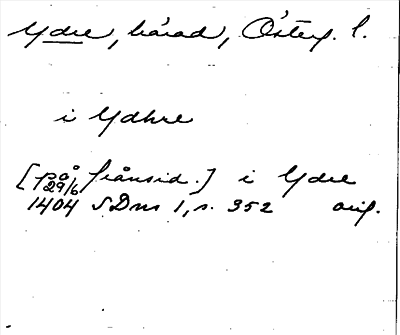 Ydre, härad, Österg. l.
i Ydhre
[på frånsid.] i Ydre
29/6 1404 SDns 1, s. 352 orig.